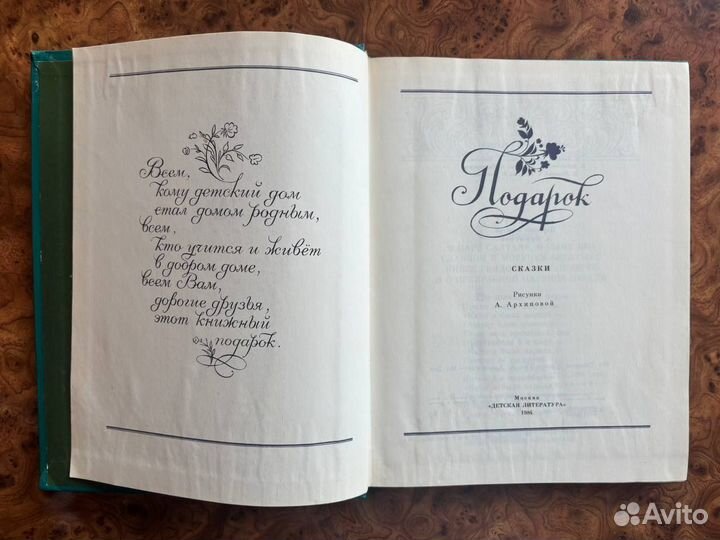 Всем,
кому детский дом
стал домом родным,
всем,
кто учится и живёт
в добром доме,
всем Вам,
дорогие друзья,
этот книжный
подарок.
Подарок
СКАЗКИ
Рисунки
А. Архиповой
Москва
«ДЕТСКАЯ ЛИТЕРАТУРА»
1986
Avito